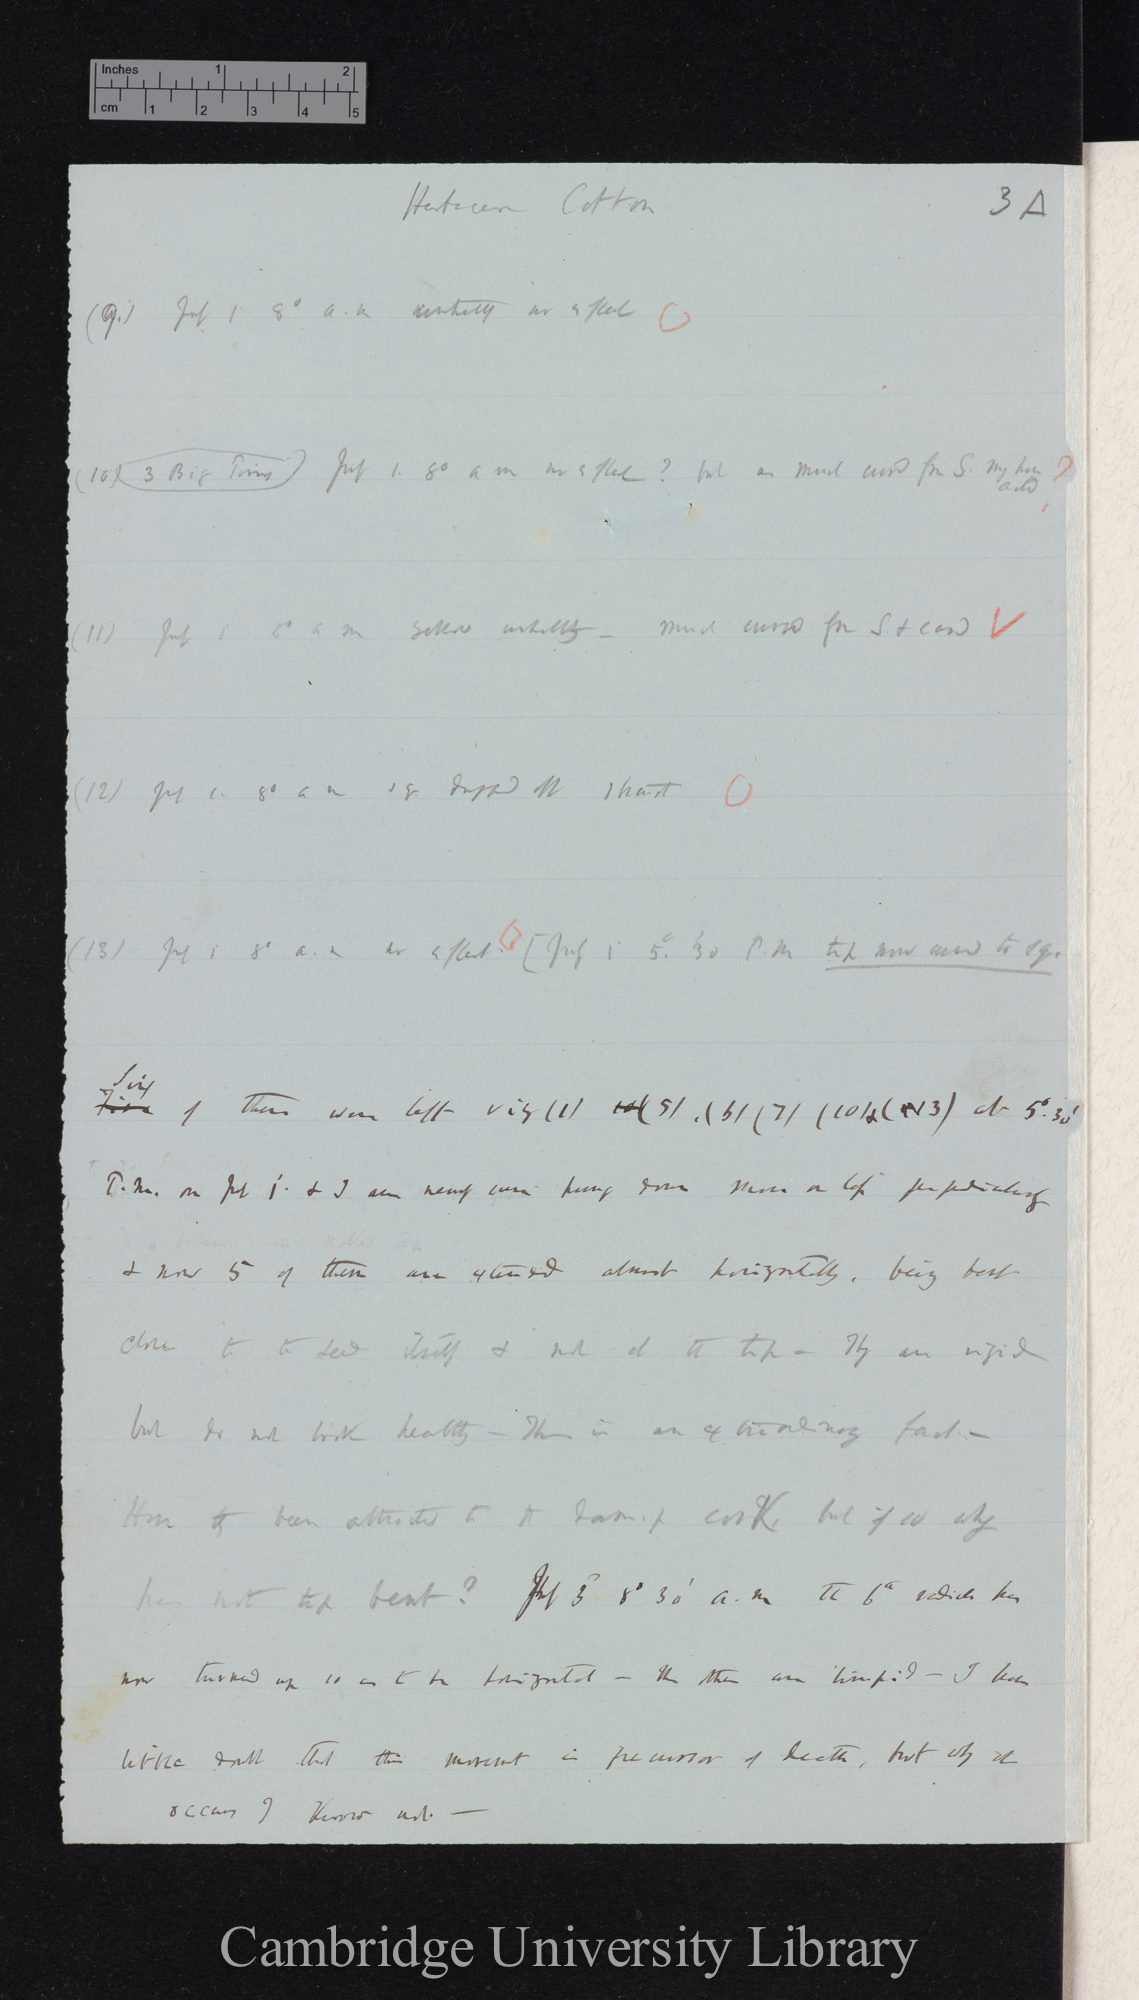 Inches 1 2
cm 1 2 3 4 5
Herbaceum Cotton 3A
(9.) July 1 8° a.m unhealthy no effect
(10) 3 Big Times July 1. 8° a m no effect? but as much curved from S. may have ?
acted
(11) July 1 8° a m unhealthy — much curved from S. & card
(12) July 1. 8° a m sq dropped off
(13) July 1 8° a.m no effect. [July 1 5°. 30' P.m tip now curved to sq.
Six
Five of these were left viz (1) (5), (6) (7) (10) & (13) at 5°.30'
P.m. on July 1. & I am nearly sure hung down more or less perpendicularly
& now 5 of them are extended almost horizontally, being bent
close to the seed itself & not at the tip — They are rigid
but do not look healthy — This is an extraordinary fact. —
Have they been attracted to the damp cork, but if so why
has not tip bent? July 3° 8° 30' a.m the 6th radicle has
now turned up so as to be horizontal — the others are limpid — I have
little doubt that this movement is precursor of death, but why it
occurs I know not. —
Cambridge University Library